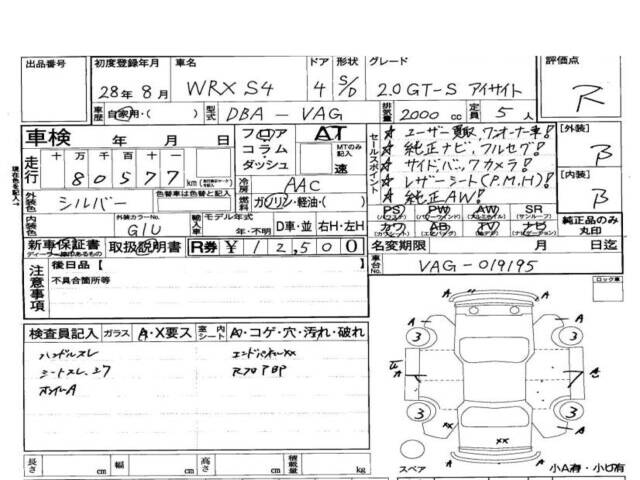 出品番号 初度登録年月 車名 ドア 形状 グレード 評価点
28年8月 WRX S4 4 S/D 2.0 GT-S アイサイト R
車歴 自家用・( ) 型式 DBA-VAG 排気量 2000 cc 定員 5 人
車検 年 月 日 フロア コラム ダッシュ AT MTのみ記入 速
走行 十 万 千 百 十 一
80577 km
セールスポイント
☆ ユーザー買取、ワンオーナー車!
☆ 純正ナビ、フルセグ!
☆ サイド、バックカメラ!
☆ レザーシート(P.M.H)!
☆ 純正AW!
[外装] B
[内装] B
外装色 シルバー 色替車は色替と記入 冷房 AAC
燃料 ガソリン・軽油・( )
PS PW AW SR
(パワステ) (パワーウィンド) (アルミホイル) (サンルーフ)
カワ AB TV ナビ
(カワシート) (エアバッグ) (テレビ) (ナビゲーション)
純正品のみ丸印
内装色 外装カラーNo. G1U 輸入車 モデル年式 年・不明 D車・並 右H・左H
新車保証書 ディーラー操作のあるもの 取扱説明書 R券 ¥12,500 名変期限 月 日迄
車台No. VAG-019195
注意事項 後日品[ ]
不具合箇所等
ロック車
検査員記入 ガラス A・X要ス 室内 シート A・コゲ・穴・汚れ・破れ
ハンドルスレ エンドパネルXX
シートスレ、シワ Rフロア凹
ホイールA
A A
3 3
A A
3 3
A XX XX A
A A
長さ cm 幅 cm 高さ cm 積載量 kg
スペア 小A有・小凹有